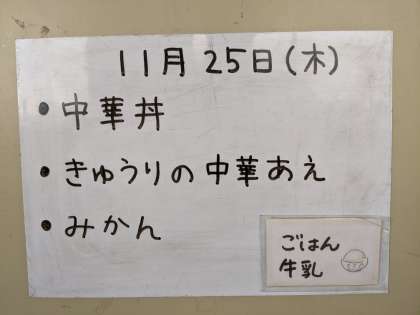 11月 25日(木)
• 中華丼
• きゅうりの中華あえ
• みかん
ごはん
牛乳